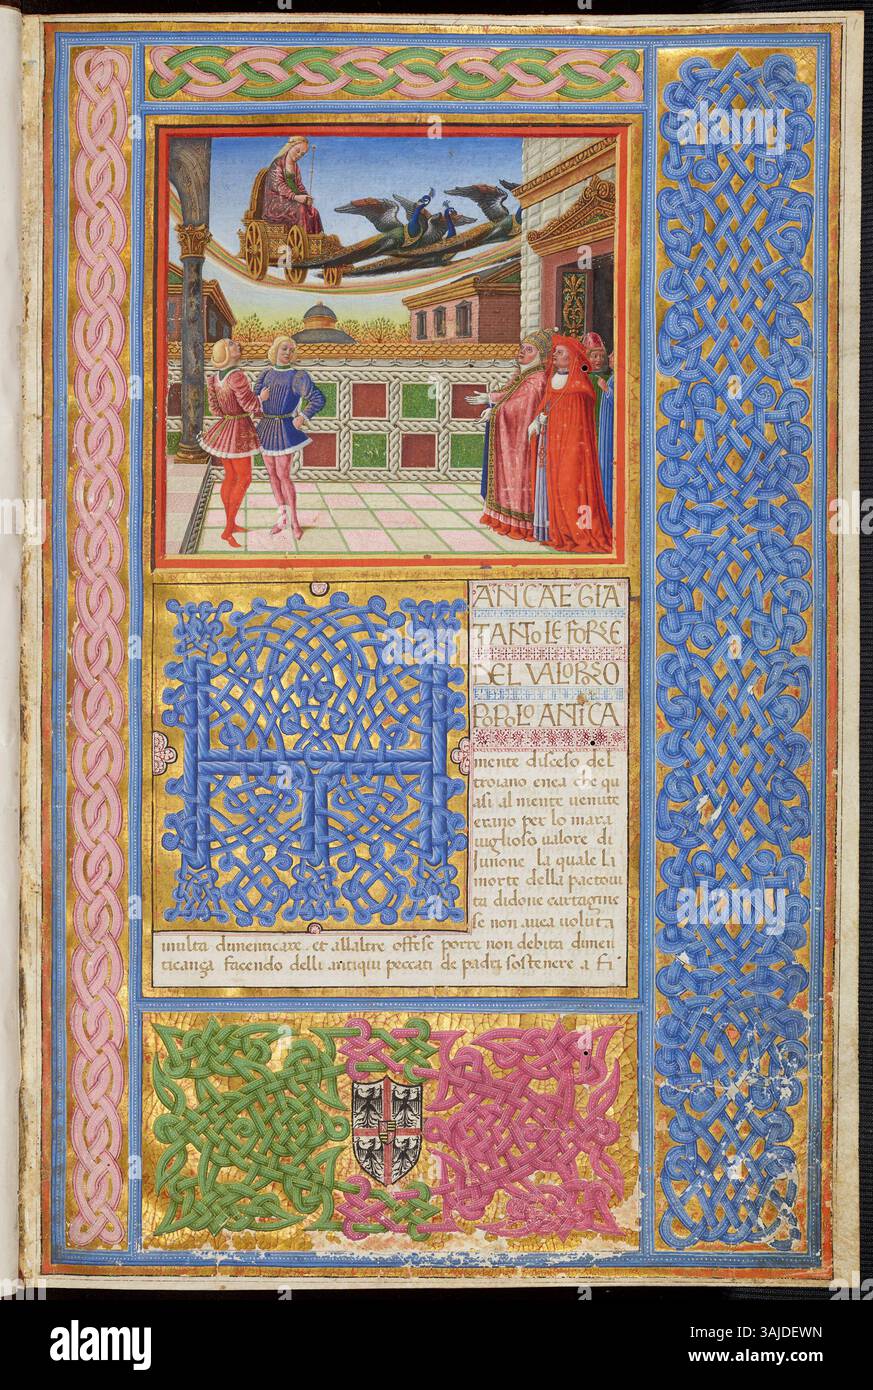 M
ANCAE GIA
TANTO LE FORZE
DEL VALOROSO
POPOLO ANTICA
mente disceso del
troiano enea che qu
asi al niente uenute
erano per lo mara
uiglioso ualore di
iunone la quale la
morte della pactoui
ta didone cartagine
se non auea uoluta
inulta dimenticare. et allaltre offese porre non debita dimen
ticanza facendo delli antiqui peccati de padri sostenere a fi
alamy
Image ID: 3AJDEWN
www.alamy.com